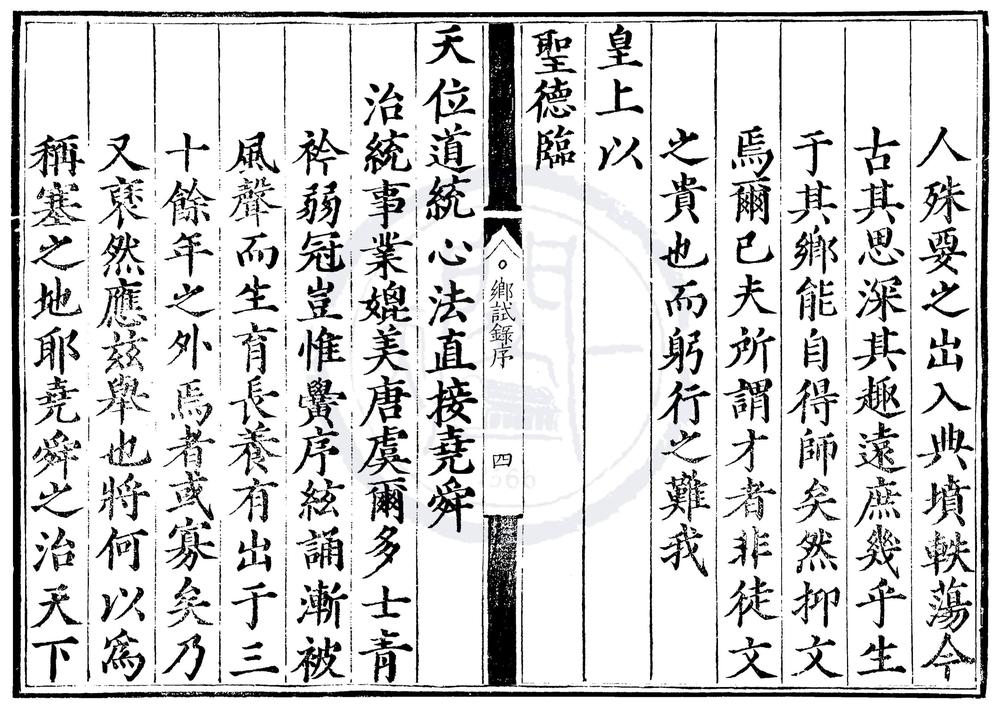 人殊要之出入典墳軼蕩今
古其思深其趣遠庶幾乎生
于其鄉能自得師矣然抑文
焉爾已夫所謂才者非徒文
之貴也而躬行之難我
皇上以
聖德臨
鄉試錄序
四
天位道統心法直接堯舜
治統事業媲美唐虞爾多士青
衿弱冠豈惟黌序絃誦漸被
風聲而生育長養有出于三
十餘年之外焉者或寡矣乃
又褎然應茲舉也將何以爲
稱塞之地耶堯舜之治天下